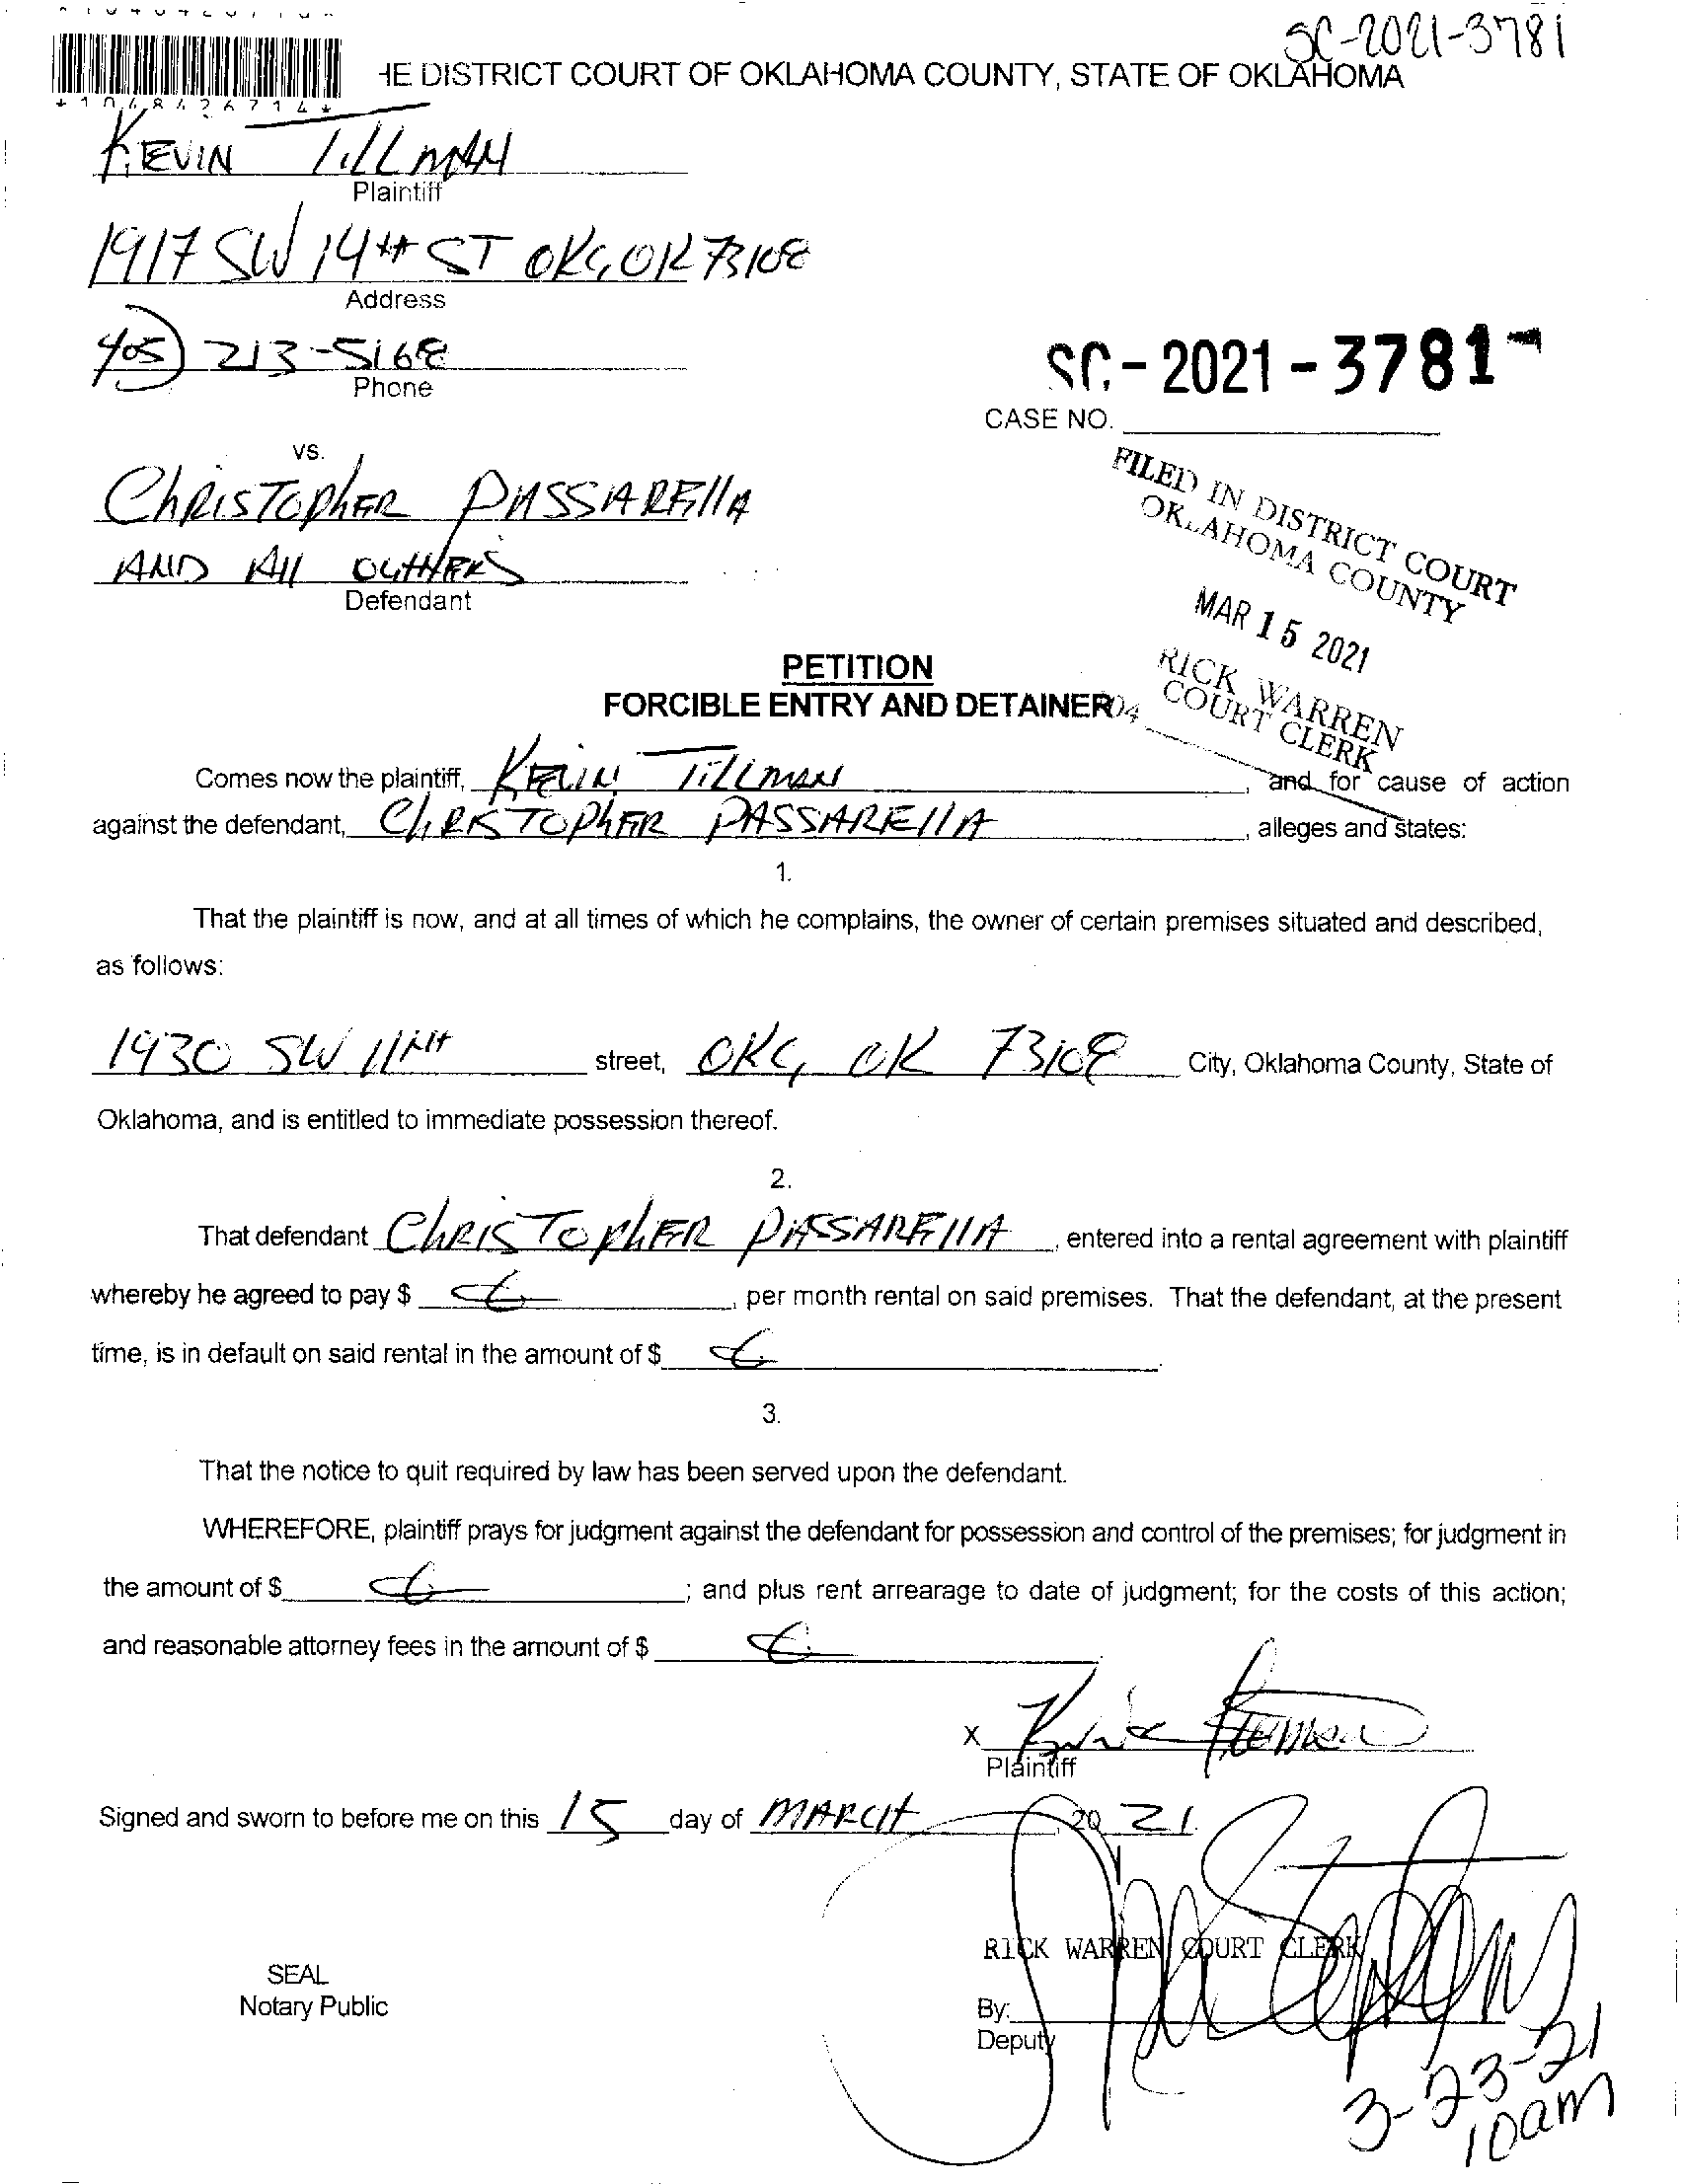 SC-2021-3781
HE DISTRICT COURT OF OKLAHOMA COUNTY, STATE OF OKLAHOMA
*1048426714*
KEVIN TILLMAN
Plaintiff
1917 SW 14th ST OKC, OK 73108
Address
405) 213-5168
Phone
SC-2021-3781-
CASE NO.
vs.
ChRISTOPhER PASSARELLA
AND All OUTHERS
Defendant
FILED IN DISTRICT COURT
OKLAHOMA COUNTY
MAR 15 2021
RICK WARREN
COURT CLERK
PETITION
FORCIBLE ENTRY AND DETAINER
04
Comes now the plaintiff, KEVIN TILLMAN, and for cause of action
against the defendant, ChRISTOPhER PASSARELLA, alleges and states:
1.
That the plaintiff is now, and at all times of which he complains, the owner of certain premises situated and described,
as follows:
1930 SW 11th street, OKC, OK 73108 City, Oklahoma County, State of
Oklahoma, and is entitled to immediate possession thereof.
2.
That defendant ChRISTOPhER PASSARELLA, entered into a rental agreement with plaintiff
whereby he agreed to pay $, per month rental on said premises. That the defendant, at the present
time, is in default on said rental in the amount of $.
3.
That the notice to quit required by law has been served upon the defendant.
WHEREFORE, plaintiff prays for judgment against the defendant for possession and control of the premises; for judgment in
the amount of $; and plus rent arrearage to date of judgment; for the costs of this action;
and reasonable attorney fees in the amount of $.
X
Plaintiff
Signed and sworn to before me on this 15 day of MARCH, 20 21.
RICK WARREN COURT CLERK
SEAL
Notary Public
By:
Deputy
3-23-21
10am